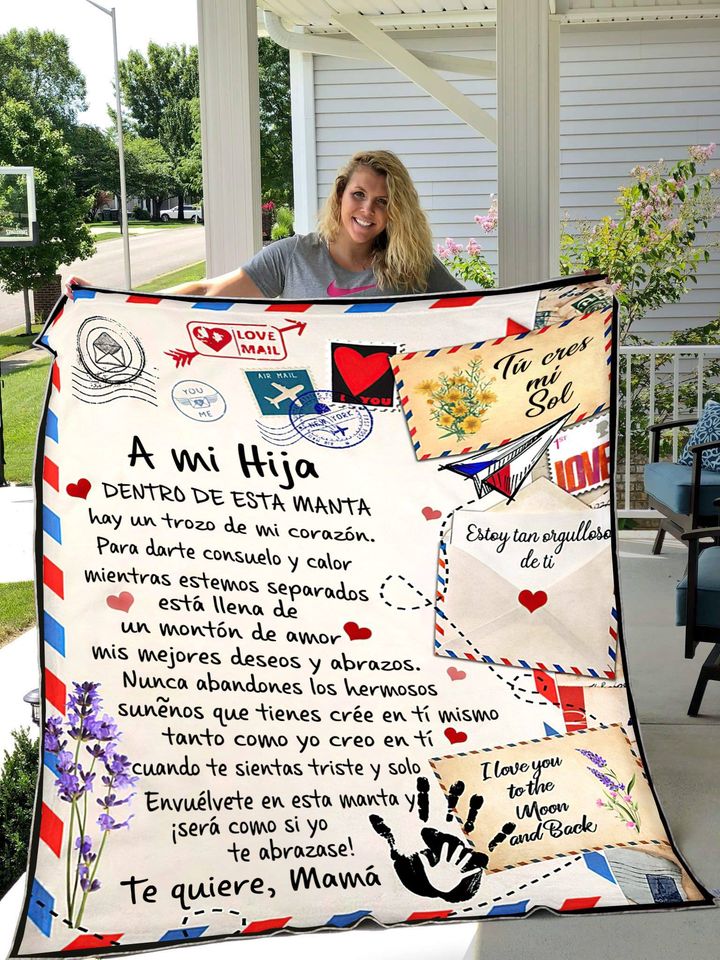 LOVE
MAIL
YOU
ME
AIR MAIL
NEW YORK
I YOU
Tú eres
mi
Sol
1st
LOVE
A mi Hija
DENTRO DE ESTA MANTA
hay un trozo de mi corazón.
Para darte consuelo y calor
mientras estemos separados
está llena de
un montón de amor
mis mejores deseos y abrazos.
Nunca abandones los hermosos
sunẽnos que tienes crée en tí mismo
tanto como yo creo en tí
cuando te sientas triste y solo
Envuélvete en esta manta y
¡será como si yo
te abrazase!
Te quiere, Mamá
Estoy tan orgulloso
de ti
I love you
to the
Moon
and Back